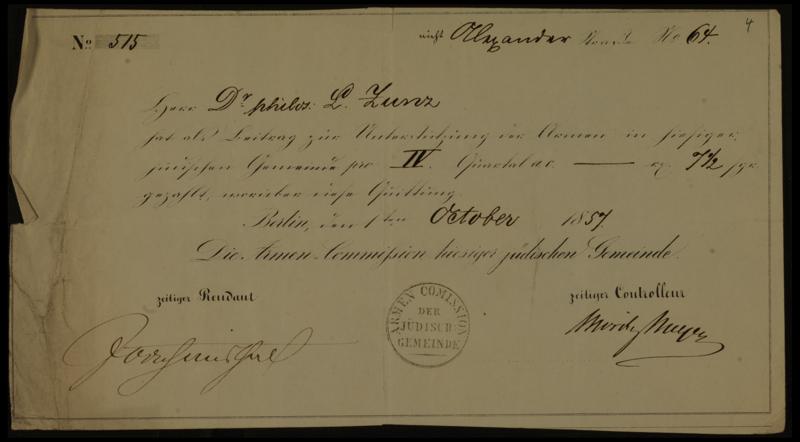 4
No 515
nicht Alexander No 64.
Herr Dr philos: L. Zunz
hat als Beitrag zur Unterstützung der Armen in hiesiger
jüdischen Gemeinde pro IV. Quartal a.c. — 7½ sgr.
gezahlt, worüber diese Quittung.
Berlin, den 1ten October 1857.
Die Armen-Commission hiesiger jüdischen Gemeinde.
zeitiger Rendant
zeitiger Controlleur
ARMEN COMISSION
DER
JÜDISCH:
GEMEINDE
Moritz Meyer